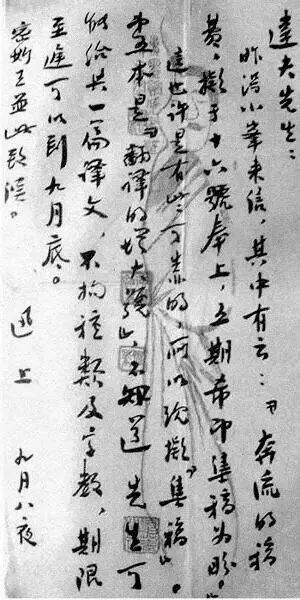 達夫先生：
昨得小峯來信，其中有云：『奔流的稿
費，擬于十六號奉上，五期希即集稿為盼。』
這也許是有些可靠的，所以現擬『集稿』。
第五本是『翻譯的增大號』，不知道 先生可
能給與一篇譯文，不拘種類及字數，期限
至遲可以到九月底。
密斯王並此致候。 迅上 九月八夜